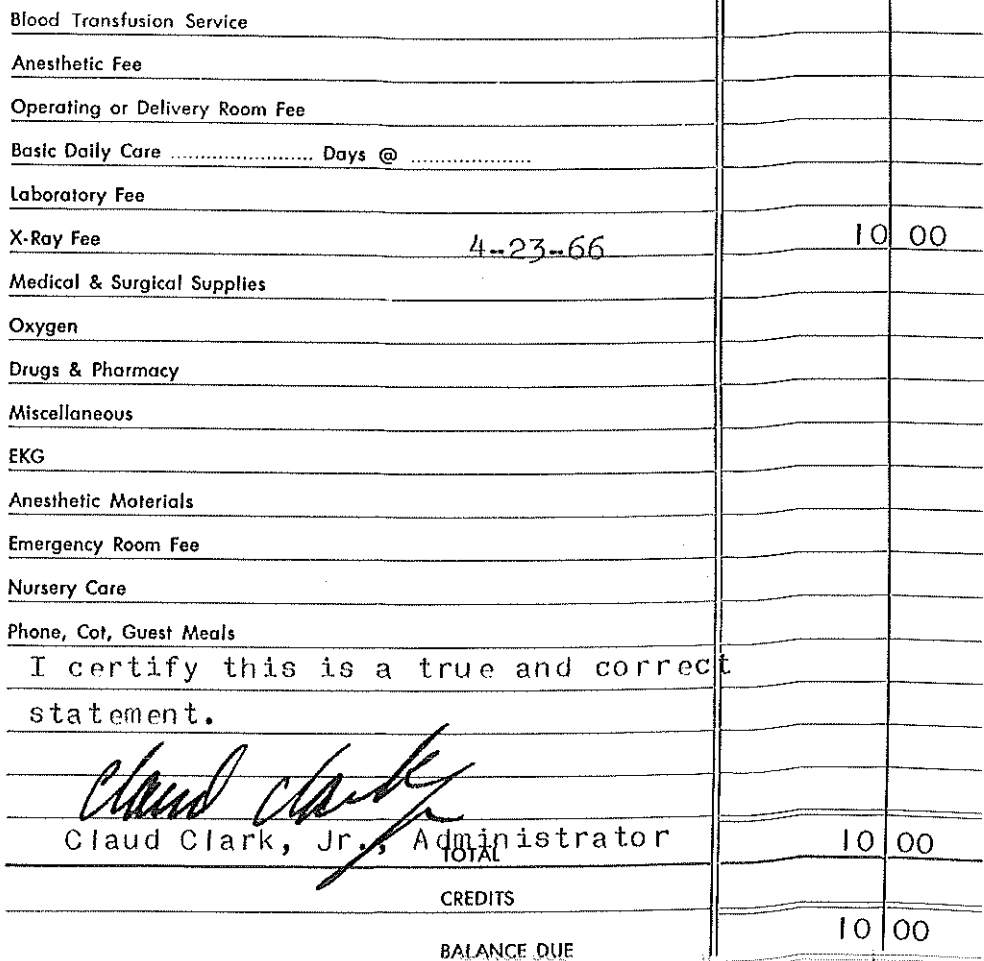 Blood Transfusion Service
Anesthetic Fee
Operating or Delivery Room Fee
Basic Daily Care ........................ Days @ ....................
Laboratory Fee
X-Ray Fee 4-23-66 10 00
Medical & Surgical Supplies
Oxygen
Drugs & Pharmacy
Miscellaneous
EKG
Anesthetic Materials
Emergency Room Fee
Nursery Care
Phone, Cot, Guest Meals
I certify this is a true and correct
statement.
Claud Clark Jr
Claud Clark, Jr., Administrator
TOTAL 10 00
CREDITS
BALANCE DUE 10 00